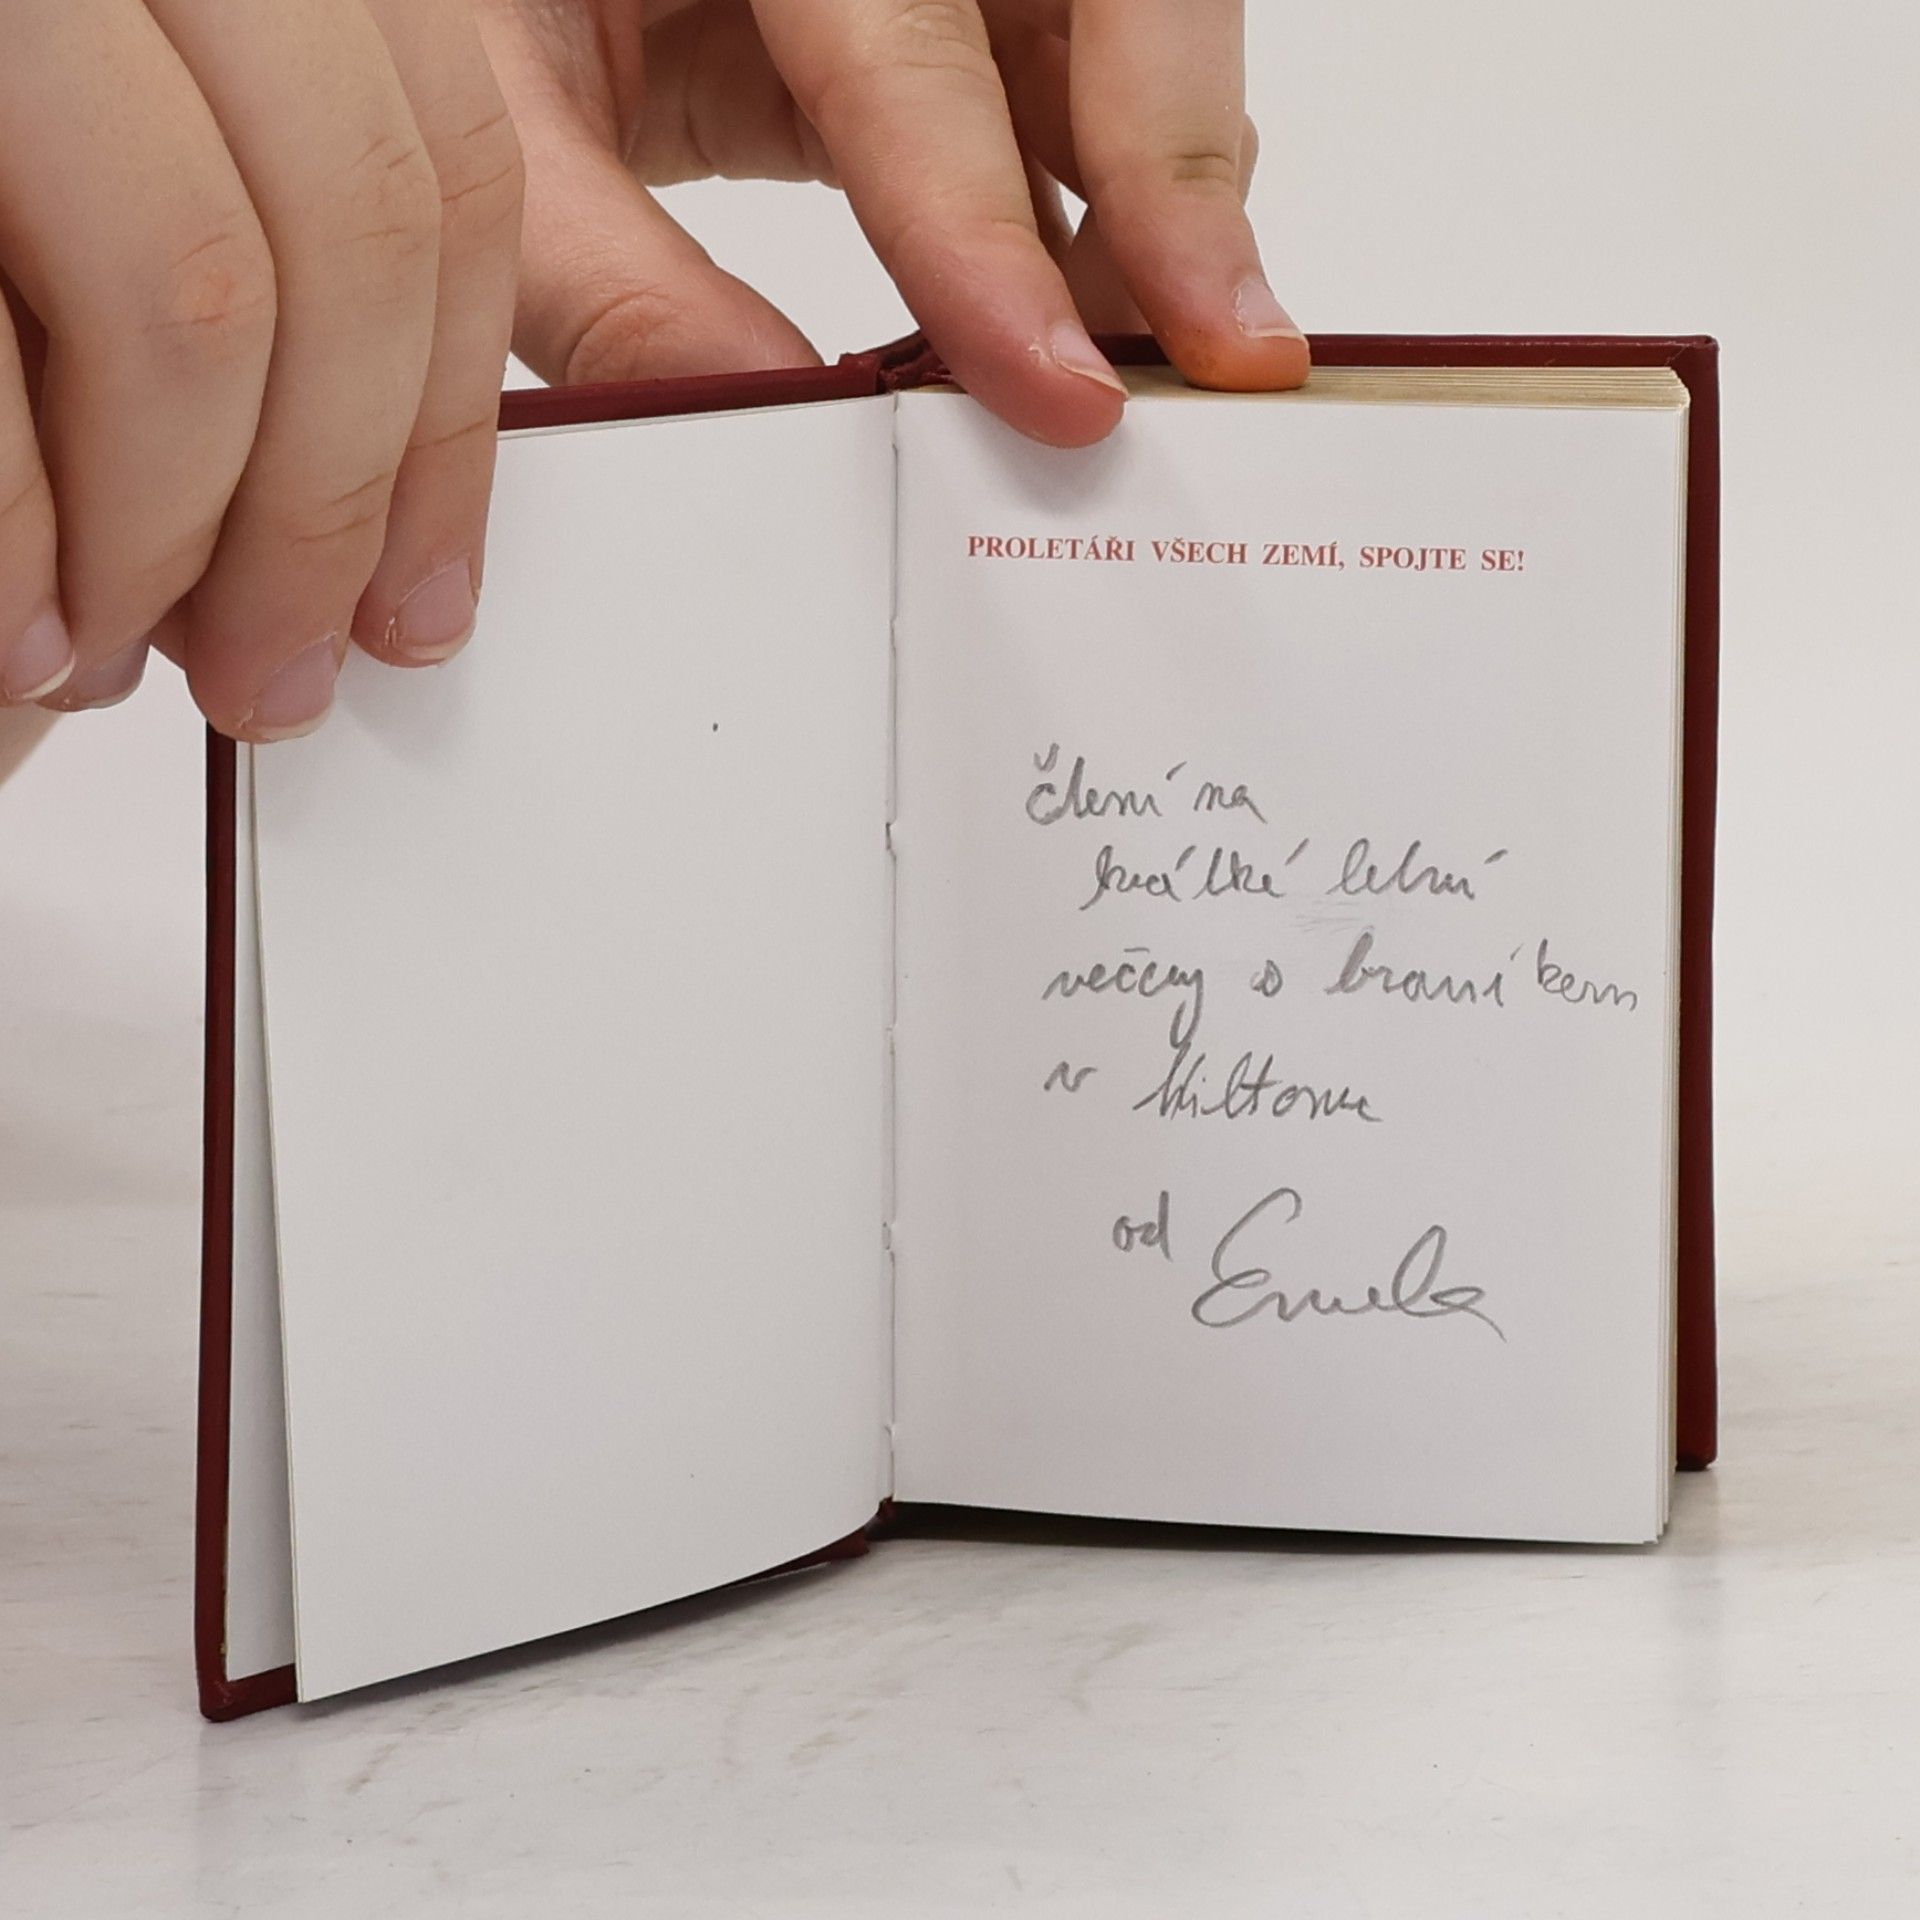 PROLETÁŘI VŠECH ZEMÍ, SPOJTE SE!
čtení na
krátké letní
večery s braníkem
v Hiltonu
od